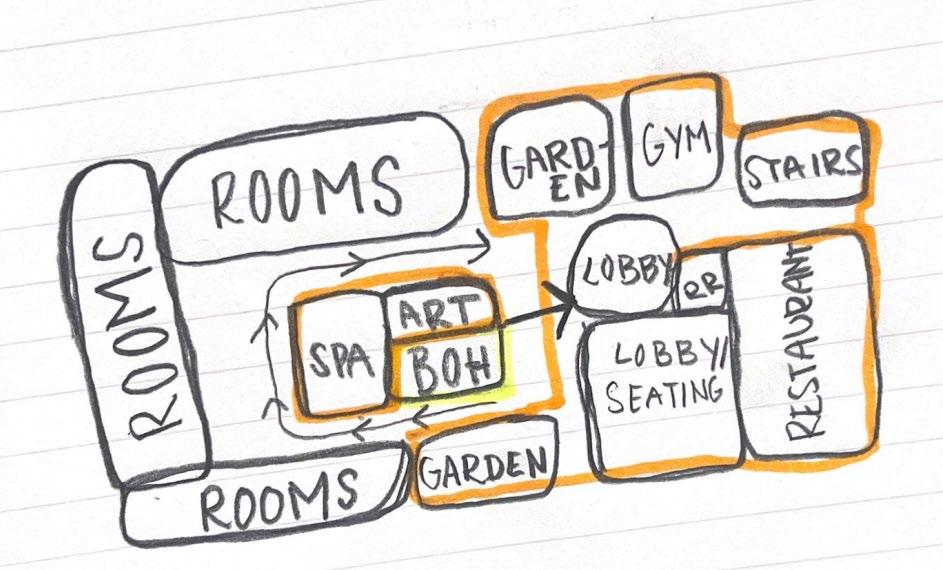 ROOMS
ROOMS
GARD-
EN
GYM
STAIRS
SPA
ART
BOH
LOBBY
RR
LOBBY/
SEATING
RESTAURANT
ROOMS
GARDEN